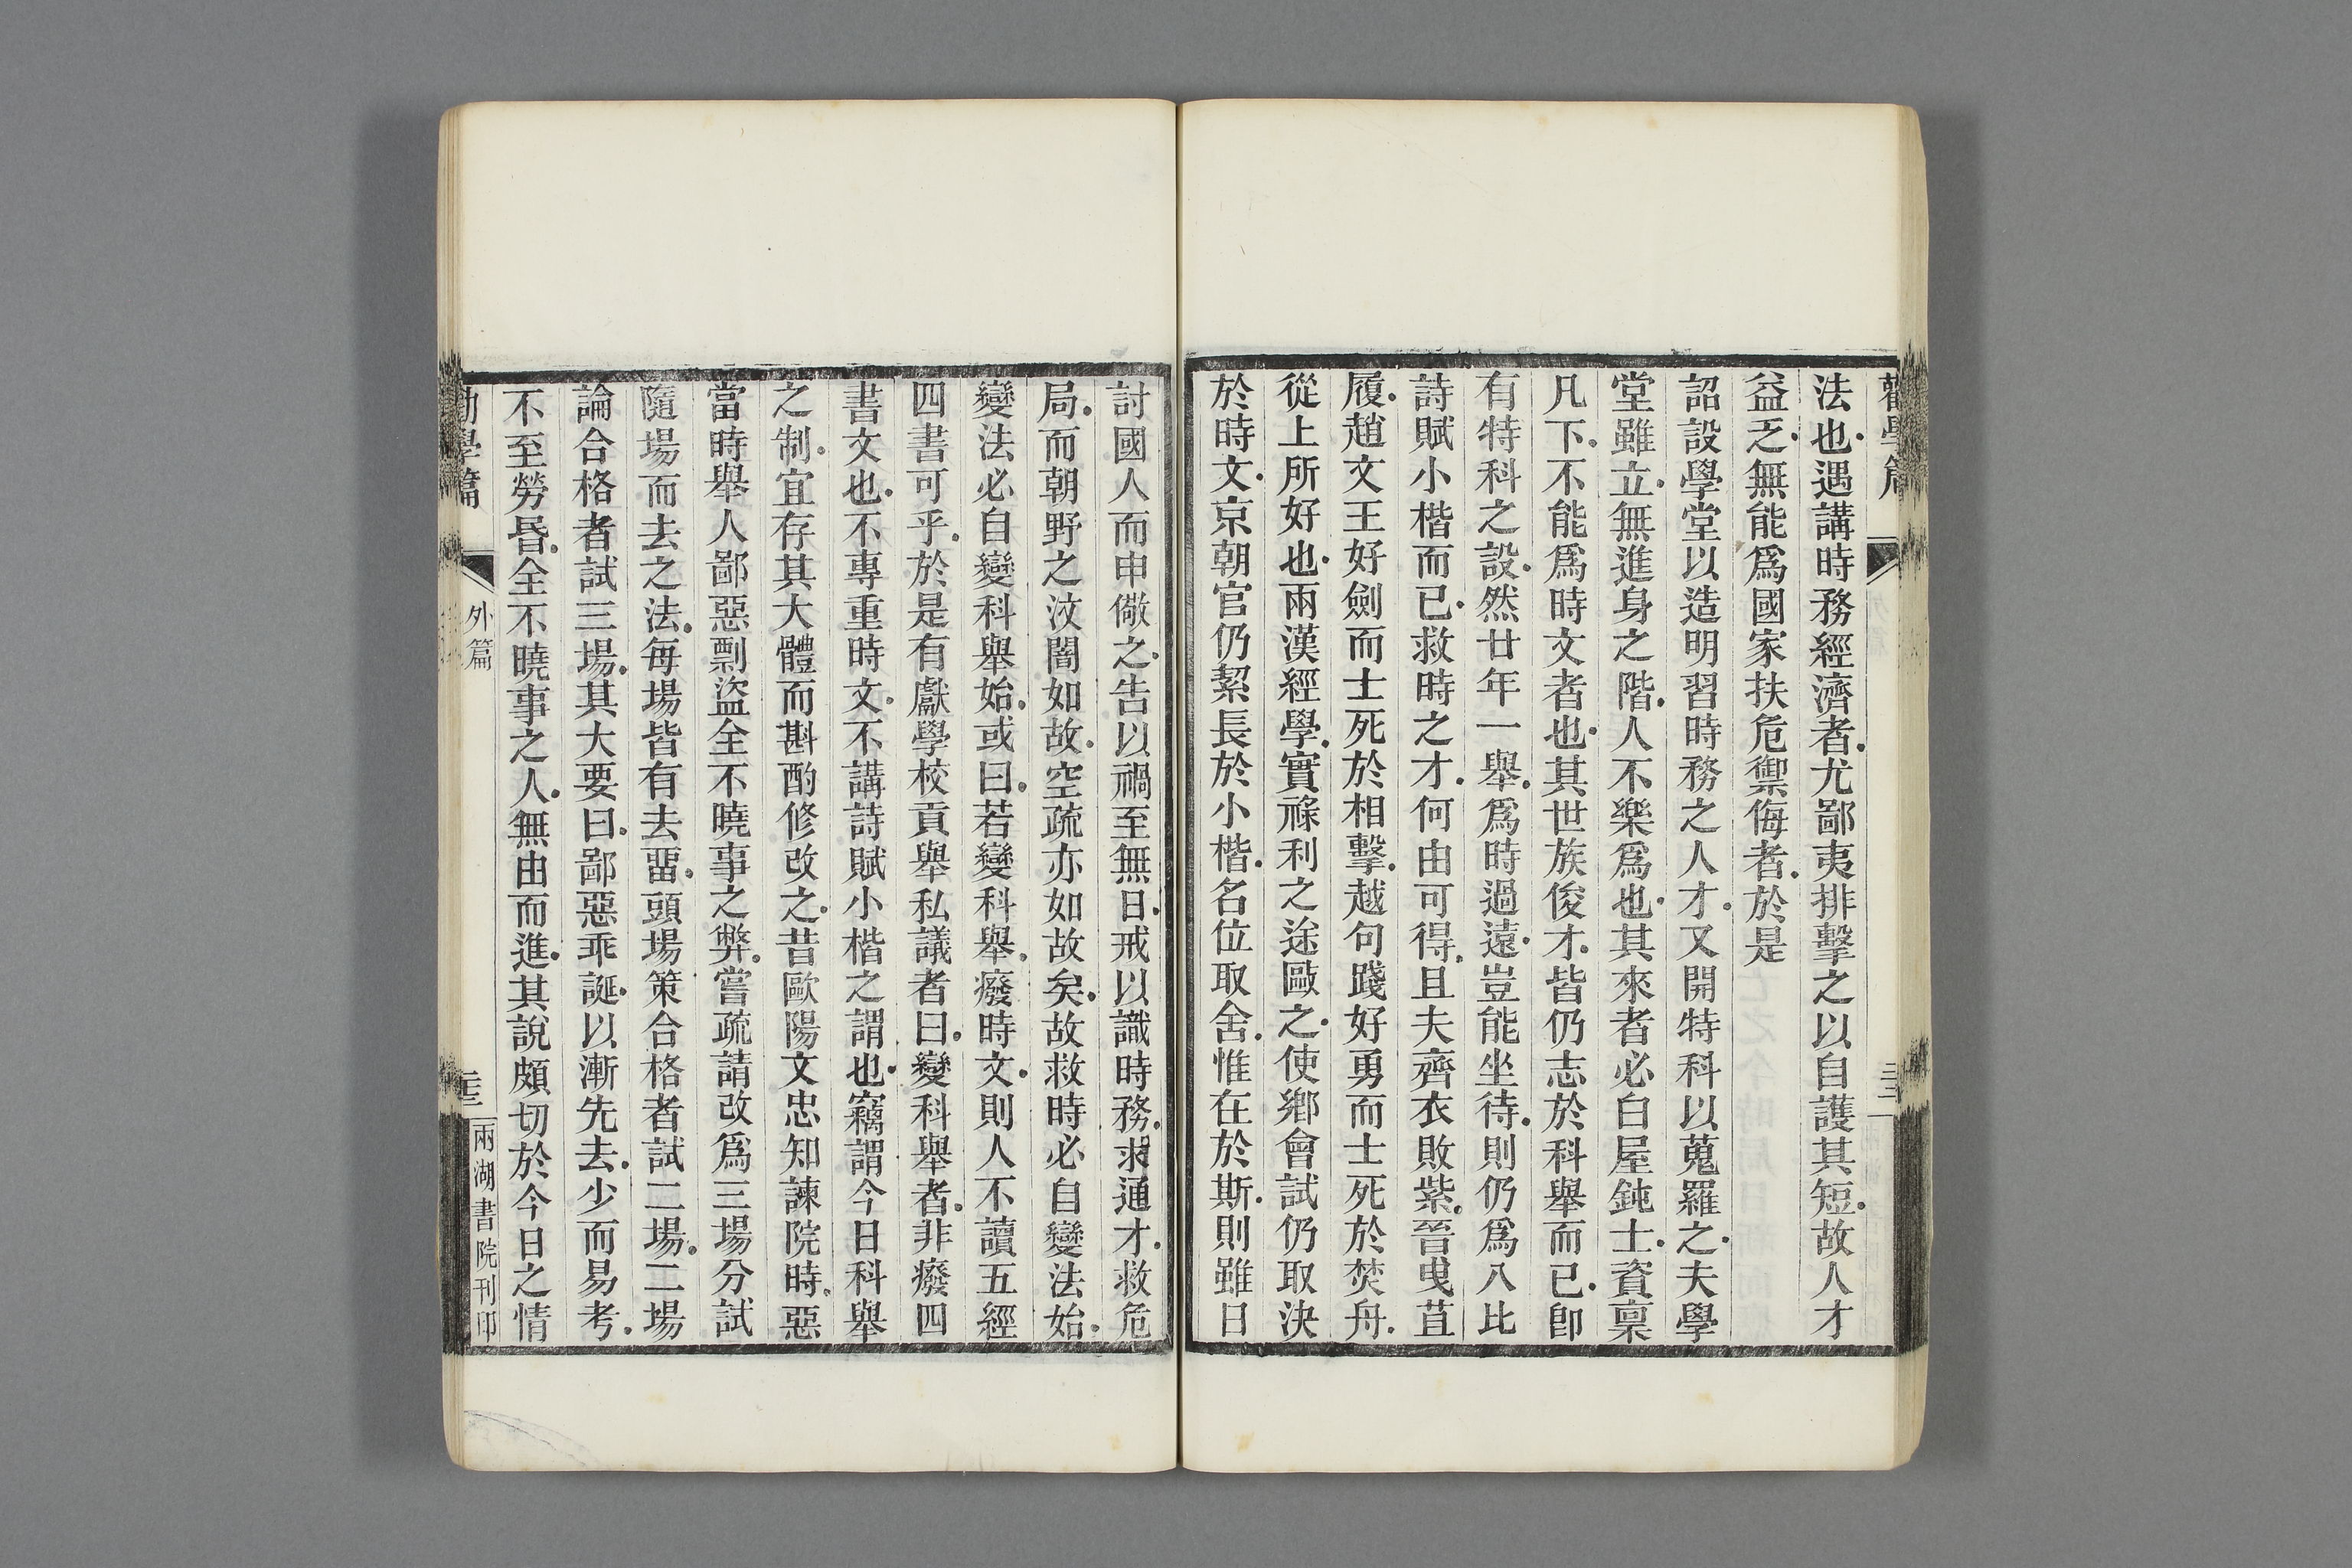 勸學篇
三十二
法也遇講時務經濟者尤鄙夷排擊之以自護其短故人才
益乏無能爲國家扶危禦侮者於是
詔設學堂以造明習時務之人才又開特科以蒐羅之夫學
堂雖立無進身之階人不樂爲也其來者必白屋鈍士資稟
凡下不能爲時文者也其世族俊才皆仍志於科舉而已卽
有特科之設然廿年一舉爲時過遠豈能坐待則仍爲八比
詩賦小楷而已救時之才何由可得且夫齊衣敗紫晉曵苴
履趙文王好劍而士死於相擊越句踐好勇而士死於焚舟
從上所好也兩漢經學實祿利之途歐之使鄉會試仍取決
於時文京朝官仍絜長於小楷名位取舍惟在於斯則雖日
討國人而申儆之告以禍至無日戒以識時務求通才救危
局而朝野之汶闇如故空疏亦如故矣故救時必自變法始
變法必自變科舉始或曰若變科舉廢時文則人不讀五經
四書可乎於是有獻學校貢舉私議者曰變科舉者非廢四
書文也不專重時文不講詩賦小楷之謂也竊謂今日科舉
之制宜存其大體而斟酌修改之昔歐陽文忠知諫院時惡
當時舉人鄙惡剽盜全不曉事之弊嘗疏請改爲三場分試
隨場而去之法每場皆有去畱頭場策合格者試二場二場
論合格者試三場其大要曰鄙惡乖誕以漸先去少而易考
不至勞昬全不曉事之人無由而進其說頗切於今日之情
勸學篇
外篇
三十三
兩湖書院刊印